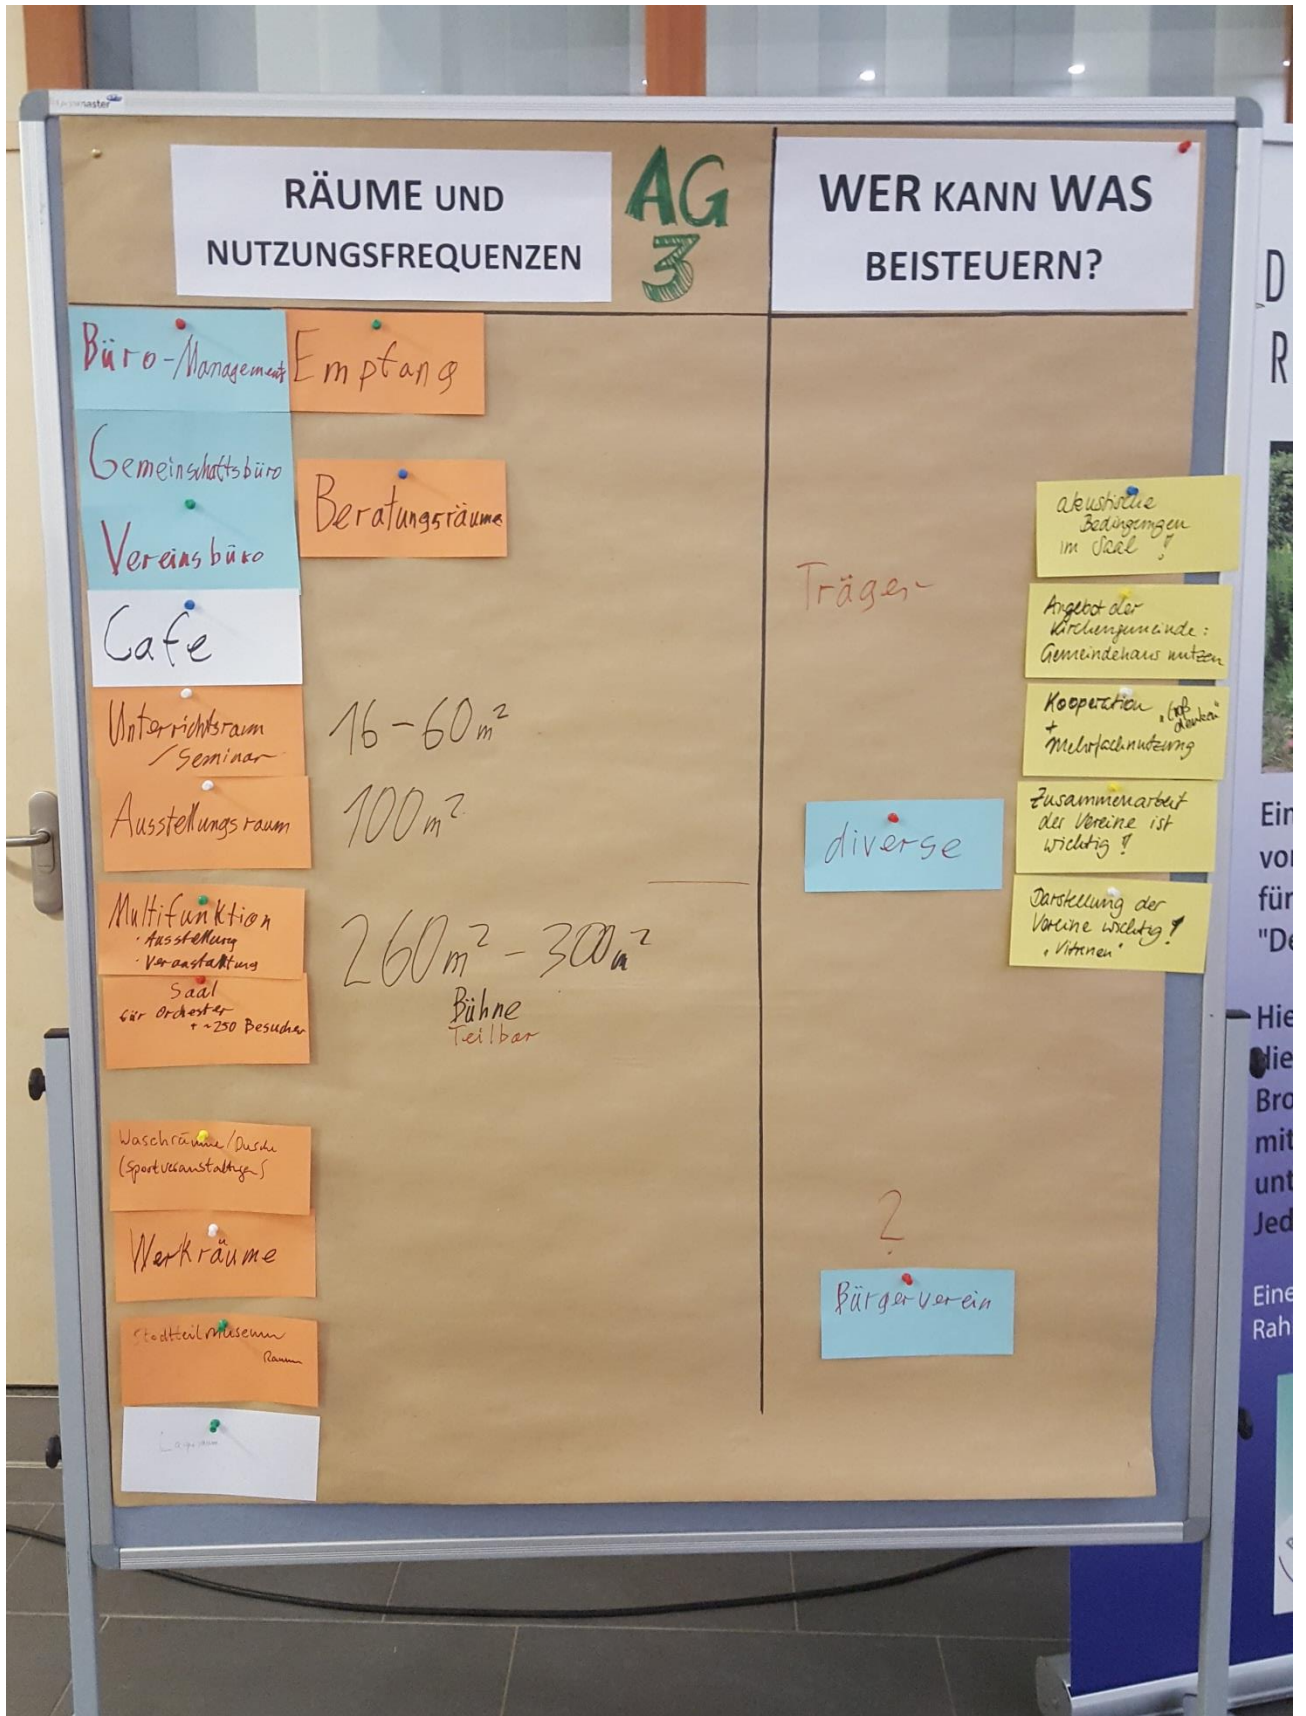 RÄUME UND
NUTZUNGSFREQUENZEN
AG
3
WER KANN WAS
BEISTEUERN?
Büro-Management
Empfang
Gemeinschaftsbüro
Beratungsräume
Vereinsbüro
Cafe
Unterrichtsraum
/ Seminar
16 - 60 m²
Ausstellungsraum
100 m²
Multifunktion
· Ausstellung
· Veranstaltung
260 m² - 300 m²
Bühne
Teilbar
Saal
für Orchester
+ ~250 Besucher
Waschräume / Dusche
Werkräume
Stadtteilmuseum
Raum
Träger
diverse
?
Bürgerverein
akustische
Bedingungen
im Saal !
Angebot der
Kirchengemeinde:
Gemeindehaus nutzen
Kooperation "Groß
denken"
+
Mehrfachnutzung
Zusammenarbeit
der Vereine ist
wichtig !
Darstellung der
Vereine wichtig !
"Vitrinen"
D
R
Ein
vo
für
"De
Hie
die
Bro
mit
unt
Jed
Eine
Rah